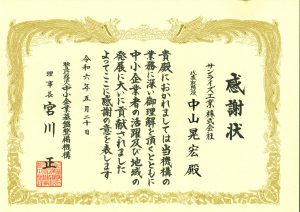 感謝状
サンライズ工業株式会社
代表取締役 中山晃宏 殿
貴殿におかれましては当機構の
業務に深い御理解を頂くとともに
中小企業者の活躍及び地域の
発展に大いに貢献されました
よってここに感謝の意を表します
令和六年五月二十日
独立行政法人中小企業基盤整備機構
理事長 宮川 正